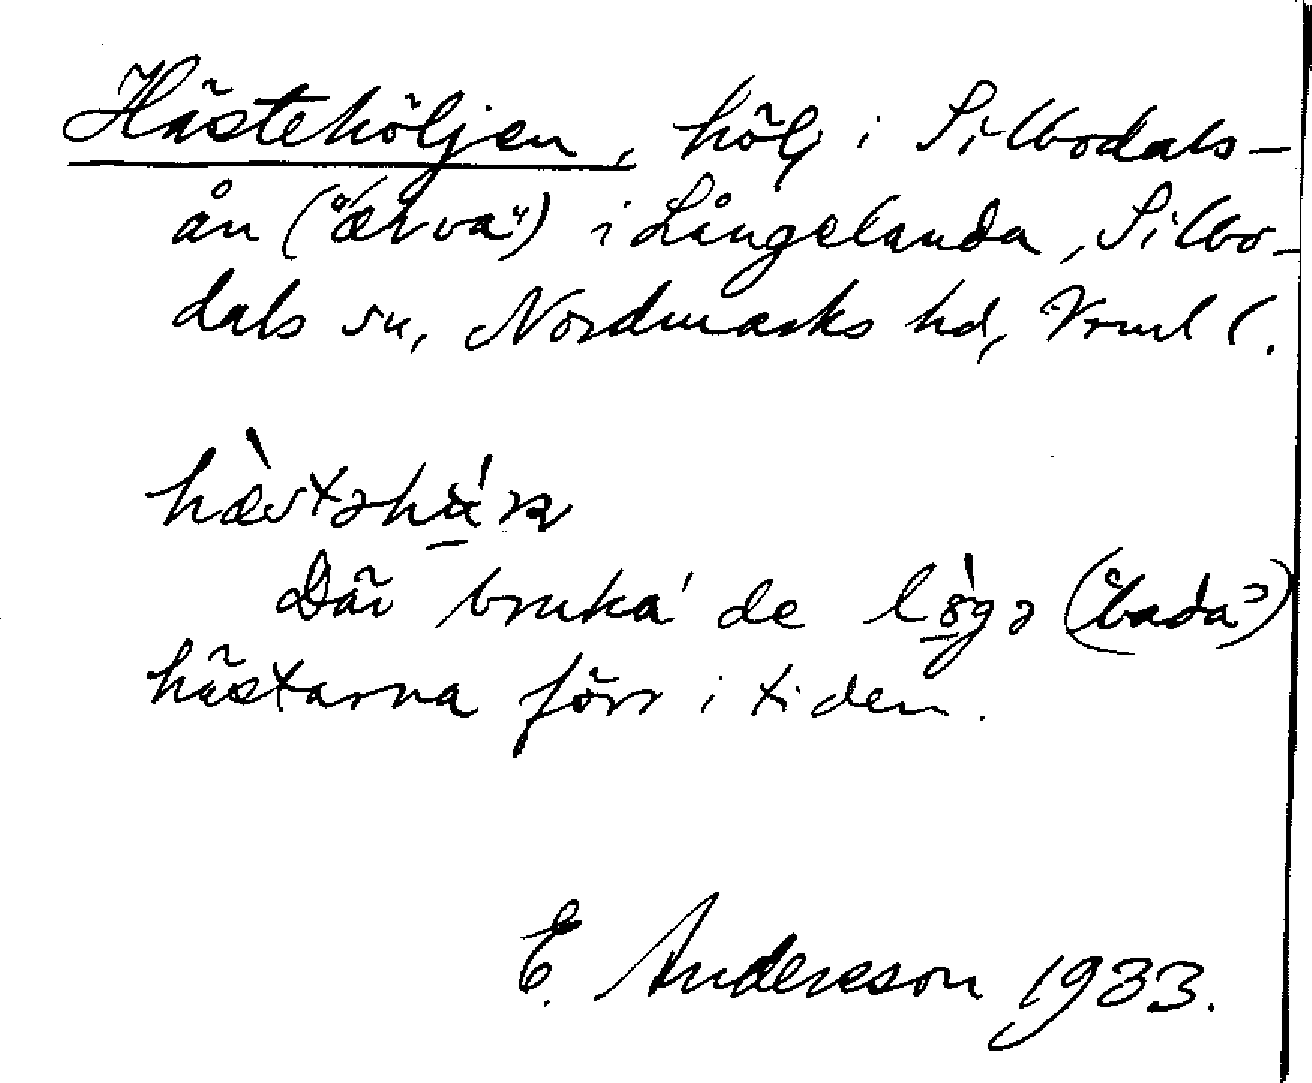 Hästehöljen, hölj i Silbodals-
ån ("ælva") i Långelanda, Silbo-
dals sn, Nordmarks hd, Vrml l.
Där bruka' de lö̀gə ("bada")
hästarna förr i tiden.
E. Andersson 1933.